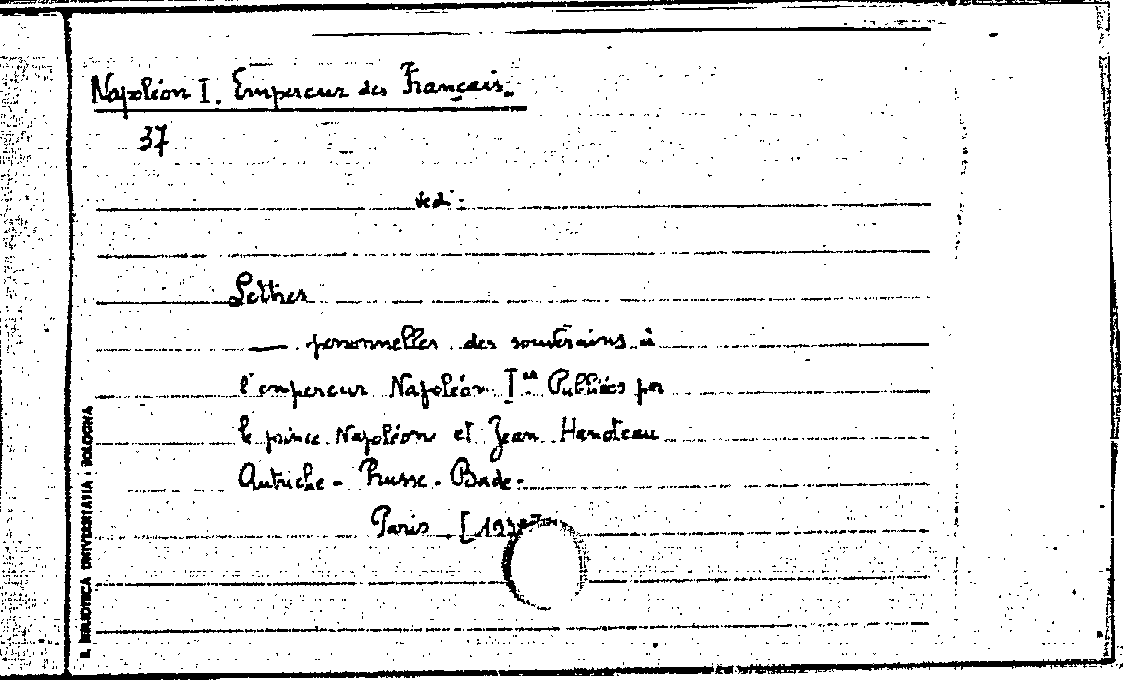 Napoléon I. Empereur des Français.
37
vedi:
Lettres
— personnelles des souverains à
l'empereur Napoléon Ier Publiées par
le prince Napoléon et Jean Hanoteau
Autriche - Prusse - Bade.
Paris [193
R. BIBLIOTECA UNIVERSITARIA - BOLOGNA